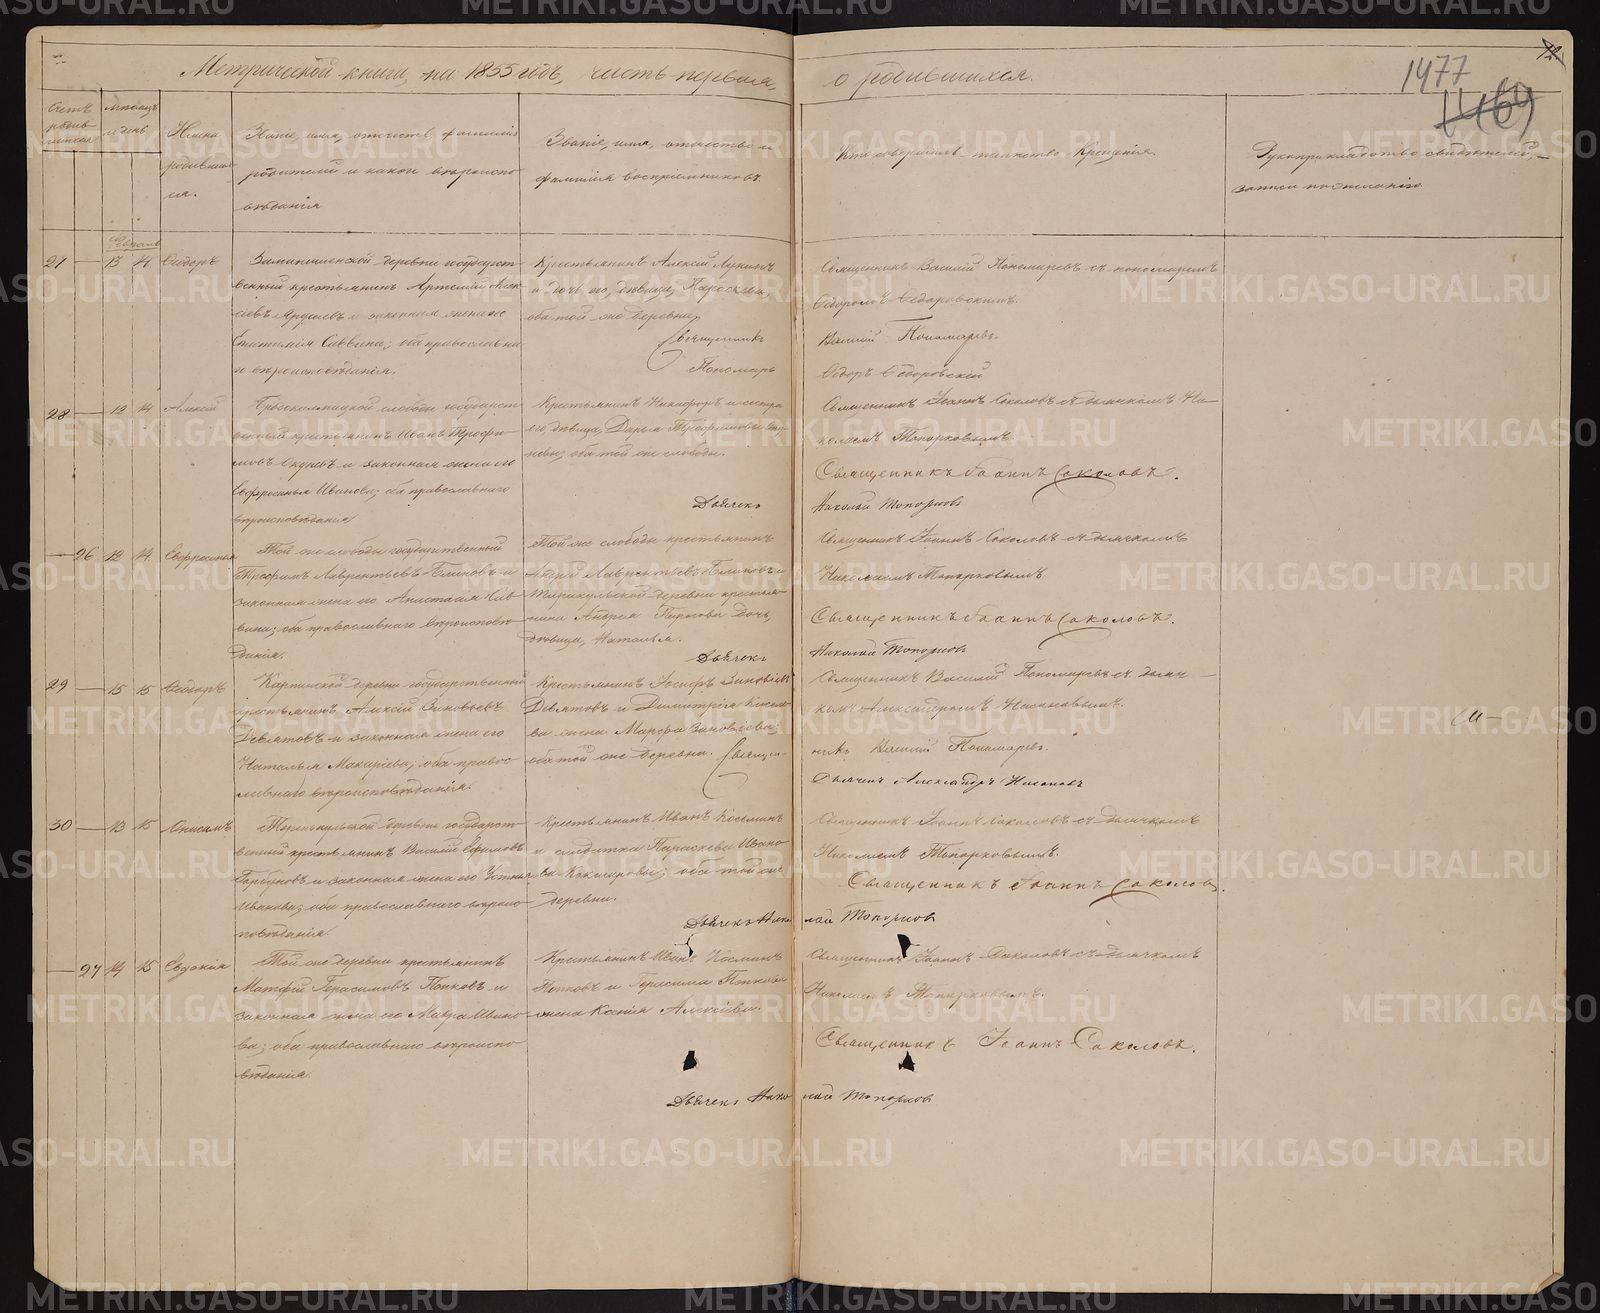 Метрической книги, на 1855 годъ, часть первая, о родившихся.
1477
12
Счетъ родив-шихся
Мѣсяцъ и день
Имена родившихся.
Званіе, имя, отчество фамилія
родителей и какого вѣроиспо-
вѣданія
Званіе, имя, отчество и
фамилія воспріемниковъ.
Кто совершалъ таинство Крещенія.
Рукоприкладство свидѣтелей,
записи по желанію
Февраль
27 13 14 Ѳедоръ
деревни государст-
венный крестьянинъ Артемій Алек-
сіевъ и законная жена его
Саввина; оба православна-
го вѣроисповѣданія.
Крестьянинъ Алексій Лукинъ
и дочь его, дѣвица, Параскева,
оба той же деревни.
Священникъ Василій Пономаревъ съ пономаремъ
Ѳедоромъ Ѳедоровскимъ.
Священникъ Василій Пономаревъ.
Пономарь Ѳедоръ Ѳедоровскій
28 12 14 Алексій
слободы государст-
венный крестьянинъ Иванъ Трофи-
мовъ Окуневъ и законная жена его
Евфросинья Иванова; оба православнаго
вѣроисповѣданія
Крестьянинъ Никифоръ и сестра
его, дѣвица, Дарья Трофимовы Оку-
невы; оба той же слободы.
Священникъ Іоаннъ Соколовъ съ дьячкомъ Ни-
колаемъ Топорковымъ.
Священникъ Іоаннъ Соколовъ.
Дьячекъ Николай Топорковъ
26 12 14 Евфросинья
Той же слободы государственный
Трофимъ Лаврентьевъ Блиновъ и
законная жена его Анастасія Сав-
вина; оба православнаго вѣроисповѣ-
данія.
Той же слободы крестьянинъ
Андрей Лаврентьевъ Блиновъ и
деревни крестья-
нина Андрея дочь,
дѣвица, Наталья.
Священникъ Іоаннъ Соколовъ съ дьячкомъ
Николаемъ Топорковымъ.
Священникъ Іоаннъ Соколовъ.
Дьячекъ Николай Топорковъ
29 15 15 Ѳедоръ
Карпинской деревни государственный
крестьянинъ Алексій Зиновьевъ
Девятовъ и законная жена его
Наталья Макаріева; оба право-
славнаго вѣроисповѣданія.
Крестьянинъ Іосифъ Зиновьевъ
Девятовъ и Димитрія
жена Марфа Зиновіева;
оба той же деревни.
Священникъ Василій Пономаревъ съ дьяч-
комъ Александромъ
Священникъ Василій Пономаревъ.
Дьячекъ Александръ
30 13 15 Онисимъ
деревни государст-
венный крестьянинъ Василій Ефимовъ
Горбуновъ и законная жена его Устинья
Иванова; оба православнаго вѣроис-
повѣданія.
Крестьянинъ Иванъ Косминъ
и солдатка Параскева Ивано-
ва; оба той же
деревни.
Священникъ Іоаннъ Соколовъ съ дьячкомъ
Николаемъ Топорковымъ.
Священникъ Іоаннъ Соколовъ.
Дьячекъ Николай Топорковъ
27 14 15 Евдокія
Той же деревни крестьянинъ
Матфей Герасимовъ Попковъ и
законная жена его Мавра Ивано-
ва; оба православнаго вѣроиспо-
вѣданія.
Крестьянинъ Иванъ Косминъ
Попковъ и Герасима Попкова
жена Ксенія Алексіева.
Священникъ Іоаннъ Соколовъ съ дьячкомъ
Николаемъ Топорковымъ.
Священникъ Іоаннъ Соколовъ.
Дьячекъ Николай Топорковъ
METRIKI.GASO-URAL.RU